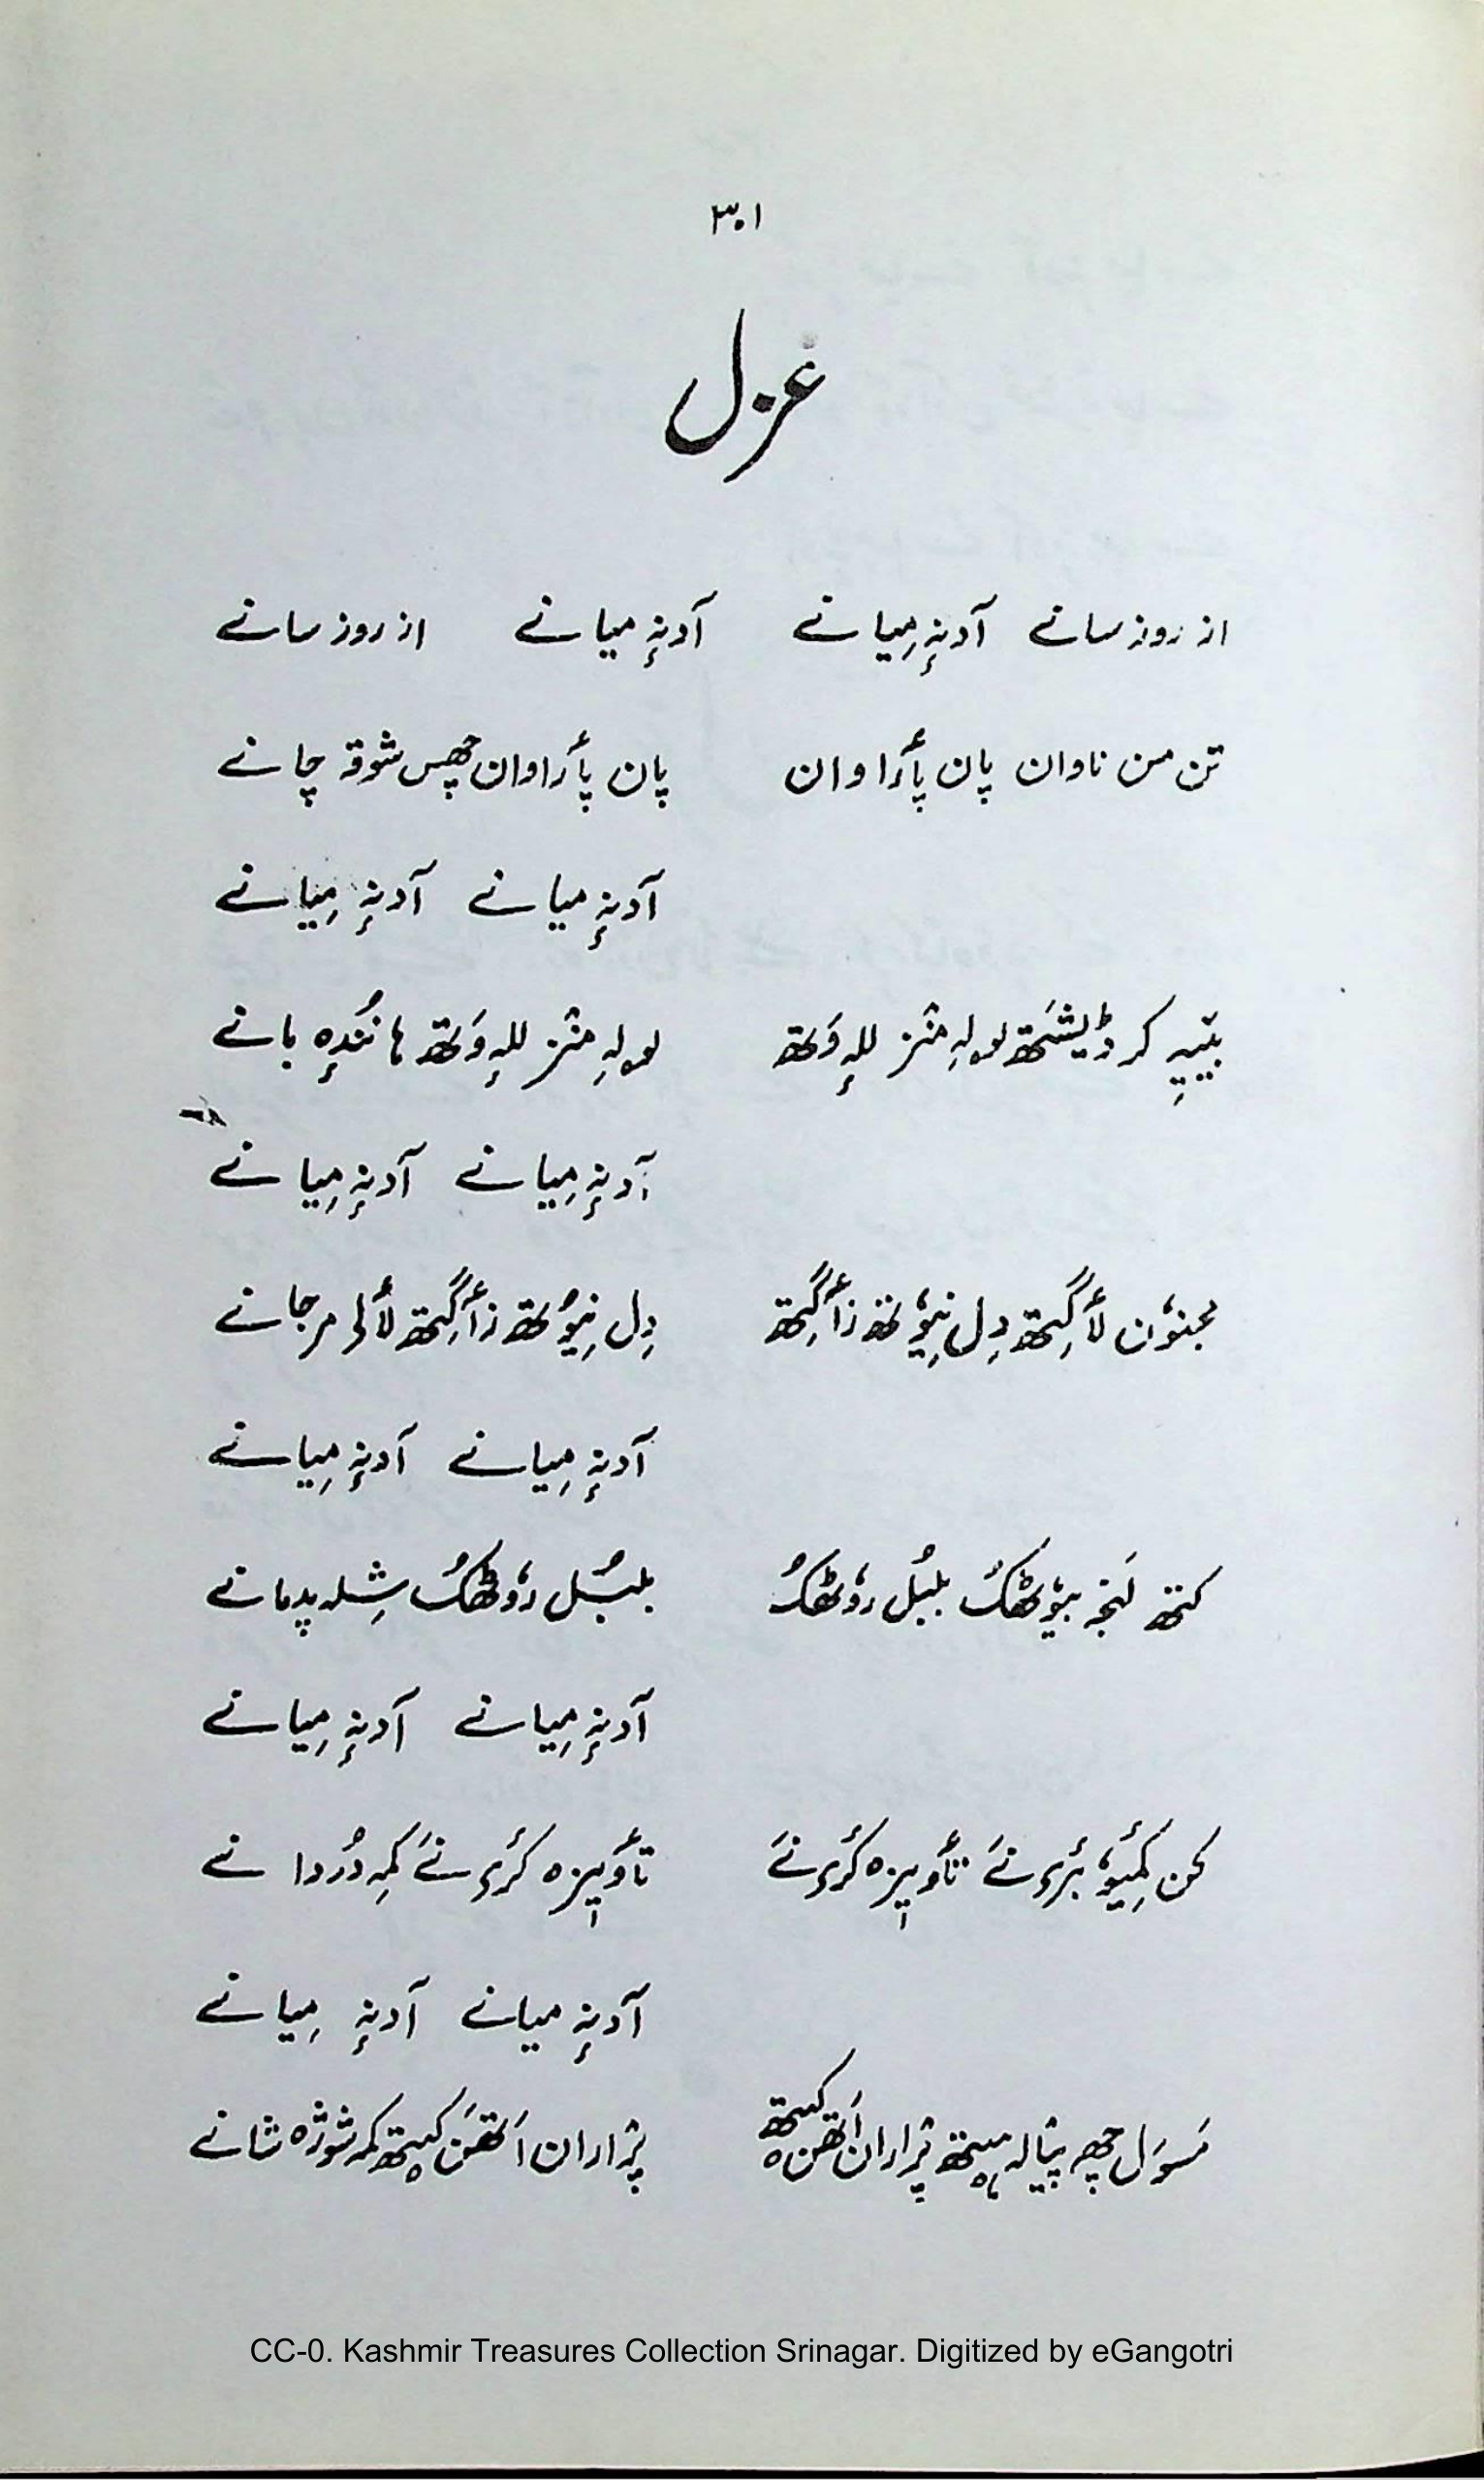 ۳۰۱
غزل
از روز سانے آدنہٕ مِیانے آدنہٕ میانے از روز سانے
تن من ناوان پان پأراوان پان پأراوان چھس شوقہ چانے
آدنہٕ میانے آدنہٕ مِیانے
بٔییہِ کر ڈیشتھ لولہِ منٛز للہٕ وَتھ لولہِ منٛز للہٕ وَتھ ہا نُندٕہ بانے
آدنہٕ مِیانے آدنہٕ مِیانے
مجنوٗن لأگِتھ دِل نِیوٗتھ زأگِتھ دِل نِیوٗتھ زأگِتھ لألی مرجانے
آدنہٕ مِیانے آدنہٕ مِیانے
کتھ لَنجہ بیوٗٹھکُ بلبُل روٗٹھکُ بلبُل روٗٹھکُ شِلہ پدمانے
آدنہٕ مِیانے آدنہٕ مِیانے
کن کِمیوٗ بٔری نَے تأویزہ کٔری نَے تأویزہ کٔری نَے کمہِ دُردا نے
آدنہٕ میانے آدنہٕ مِیانے
رَسوَل چھ پیالہ ہیتھ پرٛاران اَتھن کیتھ پرٛاران اَتھَن کیتھ کمہ شوٗژہ شانے
CC-0. Kashmir Treasures Collection Srinagar. Digitized by eGangotri